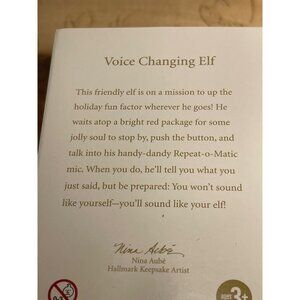 Voice Changing Elf
This friendly elf is on a mission to up the
holiday fun factor wherever he goes! He
waits atop a bright red package for some
jolly soul to stop by, push the button, and
talk into his handy-dandy Repeat-o-Matic
mic. When you do, he'll tell you what you
just said, but be prepared: You won't sound
like yourself—you'll sound like your elf!
Nina Aubé
Nina Aubé
Hallmark Keepsake Artist
AGES 3+